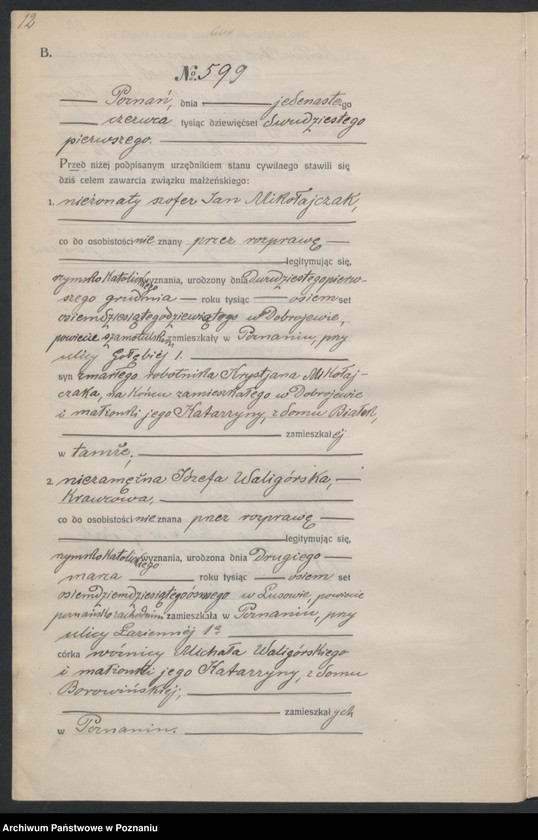 12
B.
№ 599
Poznań, dnia jedenastego
czerwca tysiąc dziewięćset dwudziestego
pierwszego.
Przed niżej podpisanym urzędnikiem stanu cywilnego stawili się
dziś celem zawarcia związku małżeńskiego:
1. nieżonaty szofer Jan Mikołajczak,
co do osobistości nie znany przez rozprawę
legitymując się,
rzymsko katolickiego wyznania, urodzony dnia dwudziestego pierw-
szego grudnia roku tysiąc osiemset
osiemdziesiątego dziewiątego w Dobrojewie,
powiecie szamotulskim zamieszkały w Poznaniu, przy
ulicy Gołębiej 1.
syn zmarłego robotnika Krystjana Mikołaj-
czaka, na końcu zamieszkałego w Dobrojewie
i małżonki jego Katarzyny, z domu Białek,
zamieszkałej
w tamże,
2. niezamężna Józefa Waligórska,
krawcowa,
co do osobistości nie znana przez rozprawę
legitymując się,
rzymsko katolickiego wyznania, urodzona dnia drugiego
marca roku tysiąc osiem set
osiemdziesiątego ósmego w Lusowie, powiecie
poznańsko zachodnim zamieszkała w Poznaniu, przy
ulicy Łaziennej 1a
córka woźnicy Michała Waligórskiego
i małżonki jego Katarzyny, z domu
Borowińskiej,
zamieszkałych
w Poznaniu.
Archiwum Państwowe w Poznaniu